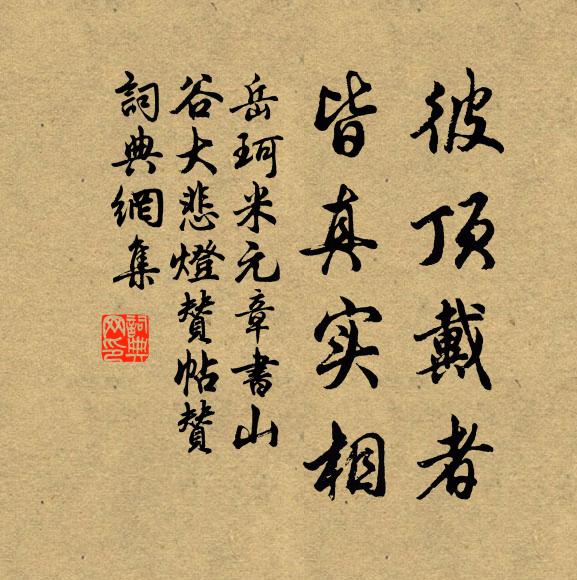 彼顶戴者
皆真实相
岳珂米元章書山
谷大悲燈贊帖贊
詞典網集
詞典
网印